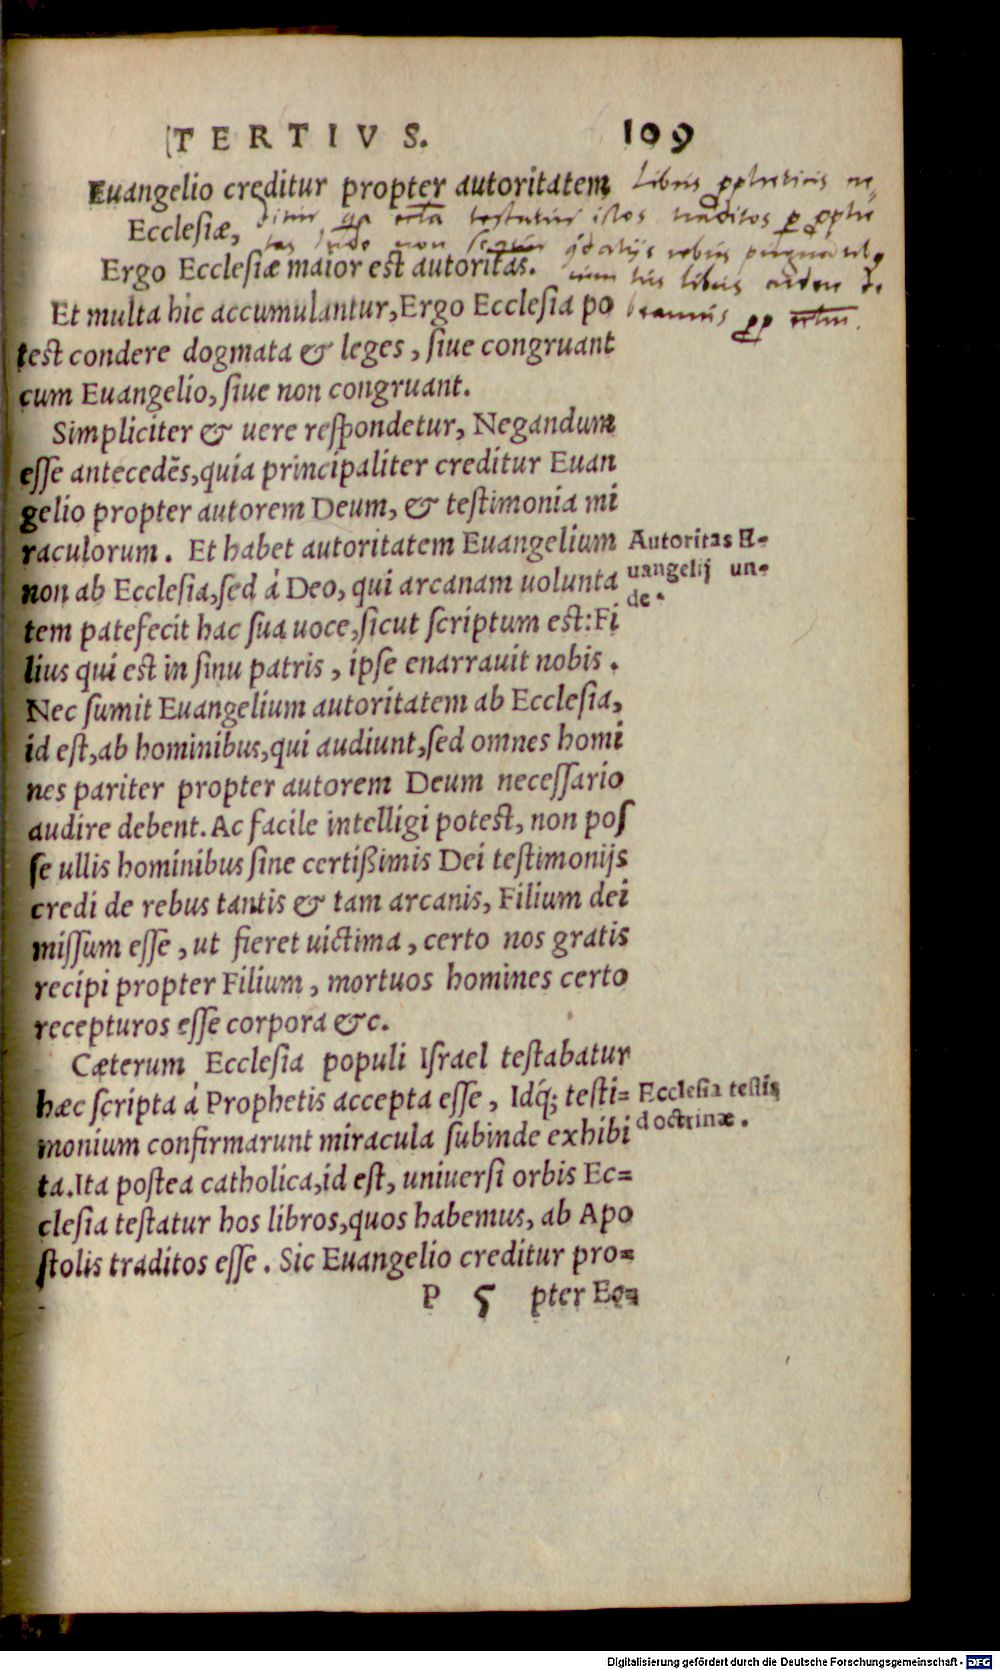 TERTIVS. 109
Euangelio creditur propter autoritatem
Ecclesiæ,
Ergo Ecclesiæ maior est autoritas.
Et multa hic accumulantur, Ergo Ecclesia po
test condere dogmata & leges, siue congruant
cum Euangelio, siue non congruant.
Simpliciter & uere respondetur, Negandum
esse antecedẽs, quia principaliter creditur Euan
gelio propter autorem Deum, & testimonia mi
raculorum. Et habet autoritatem Euangelium
non ab Ecclesia, sed à Deo, qui arcanam uolunta
tem patefecit hac sua uoce, sicut scriptum est: Fi
lius qui est in sinu patris, ipse enarrauit nobis.
Nec sumit Euangelium autoritatem ab Ecclesia,
id est, ab hominibus, qui audiunt, sed omnes homi
nes pariter propter autorem Deum necessario
audire debent. Ac facile intelligi potest, non pos
se ullis hominibus sine certißimis Dei testimonijs
credi de rebus tantis & tam arcanis, Filium dei
missum esse, ut fieret uictima, certo nos gratis
recipi propter Filium, mortuos homines certo
recepturos esse corpora &c.
Cæterum Ecclesia populi Israel testabatur
hæc scripta à Prophetis accepta esse, Idq́; testi=
monium confirmarunt miracula subinde exhibi
ta. Ita postea catholica, id est, uniuersi orbis Ec=
clesia testatur hos libros, quos habemus, ab Apo
stolis traditos esse. Sic Euangelio creditur pro=
P 5 pter Ec=
Libris
testatur istos traditos
non
rebus
his libris
Autoritas E-
uangelij un-
de.
Ecclesia testis
doctrinæ.
Digitalisierung gefördert durch die Deutsche Forschungsgemeinschaft - DFG